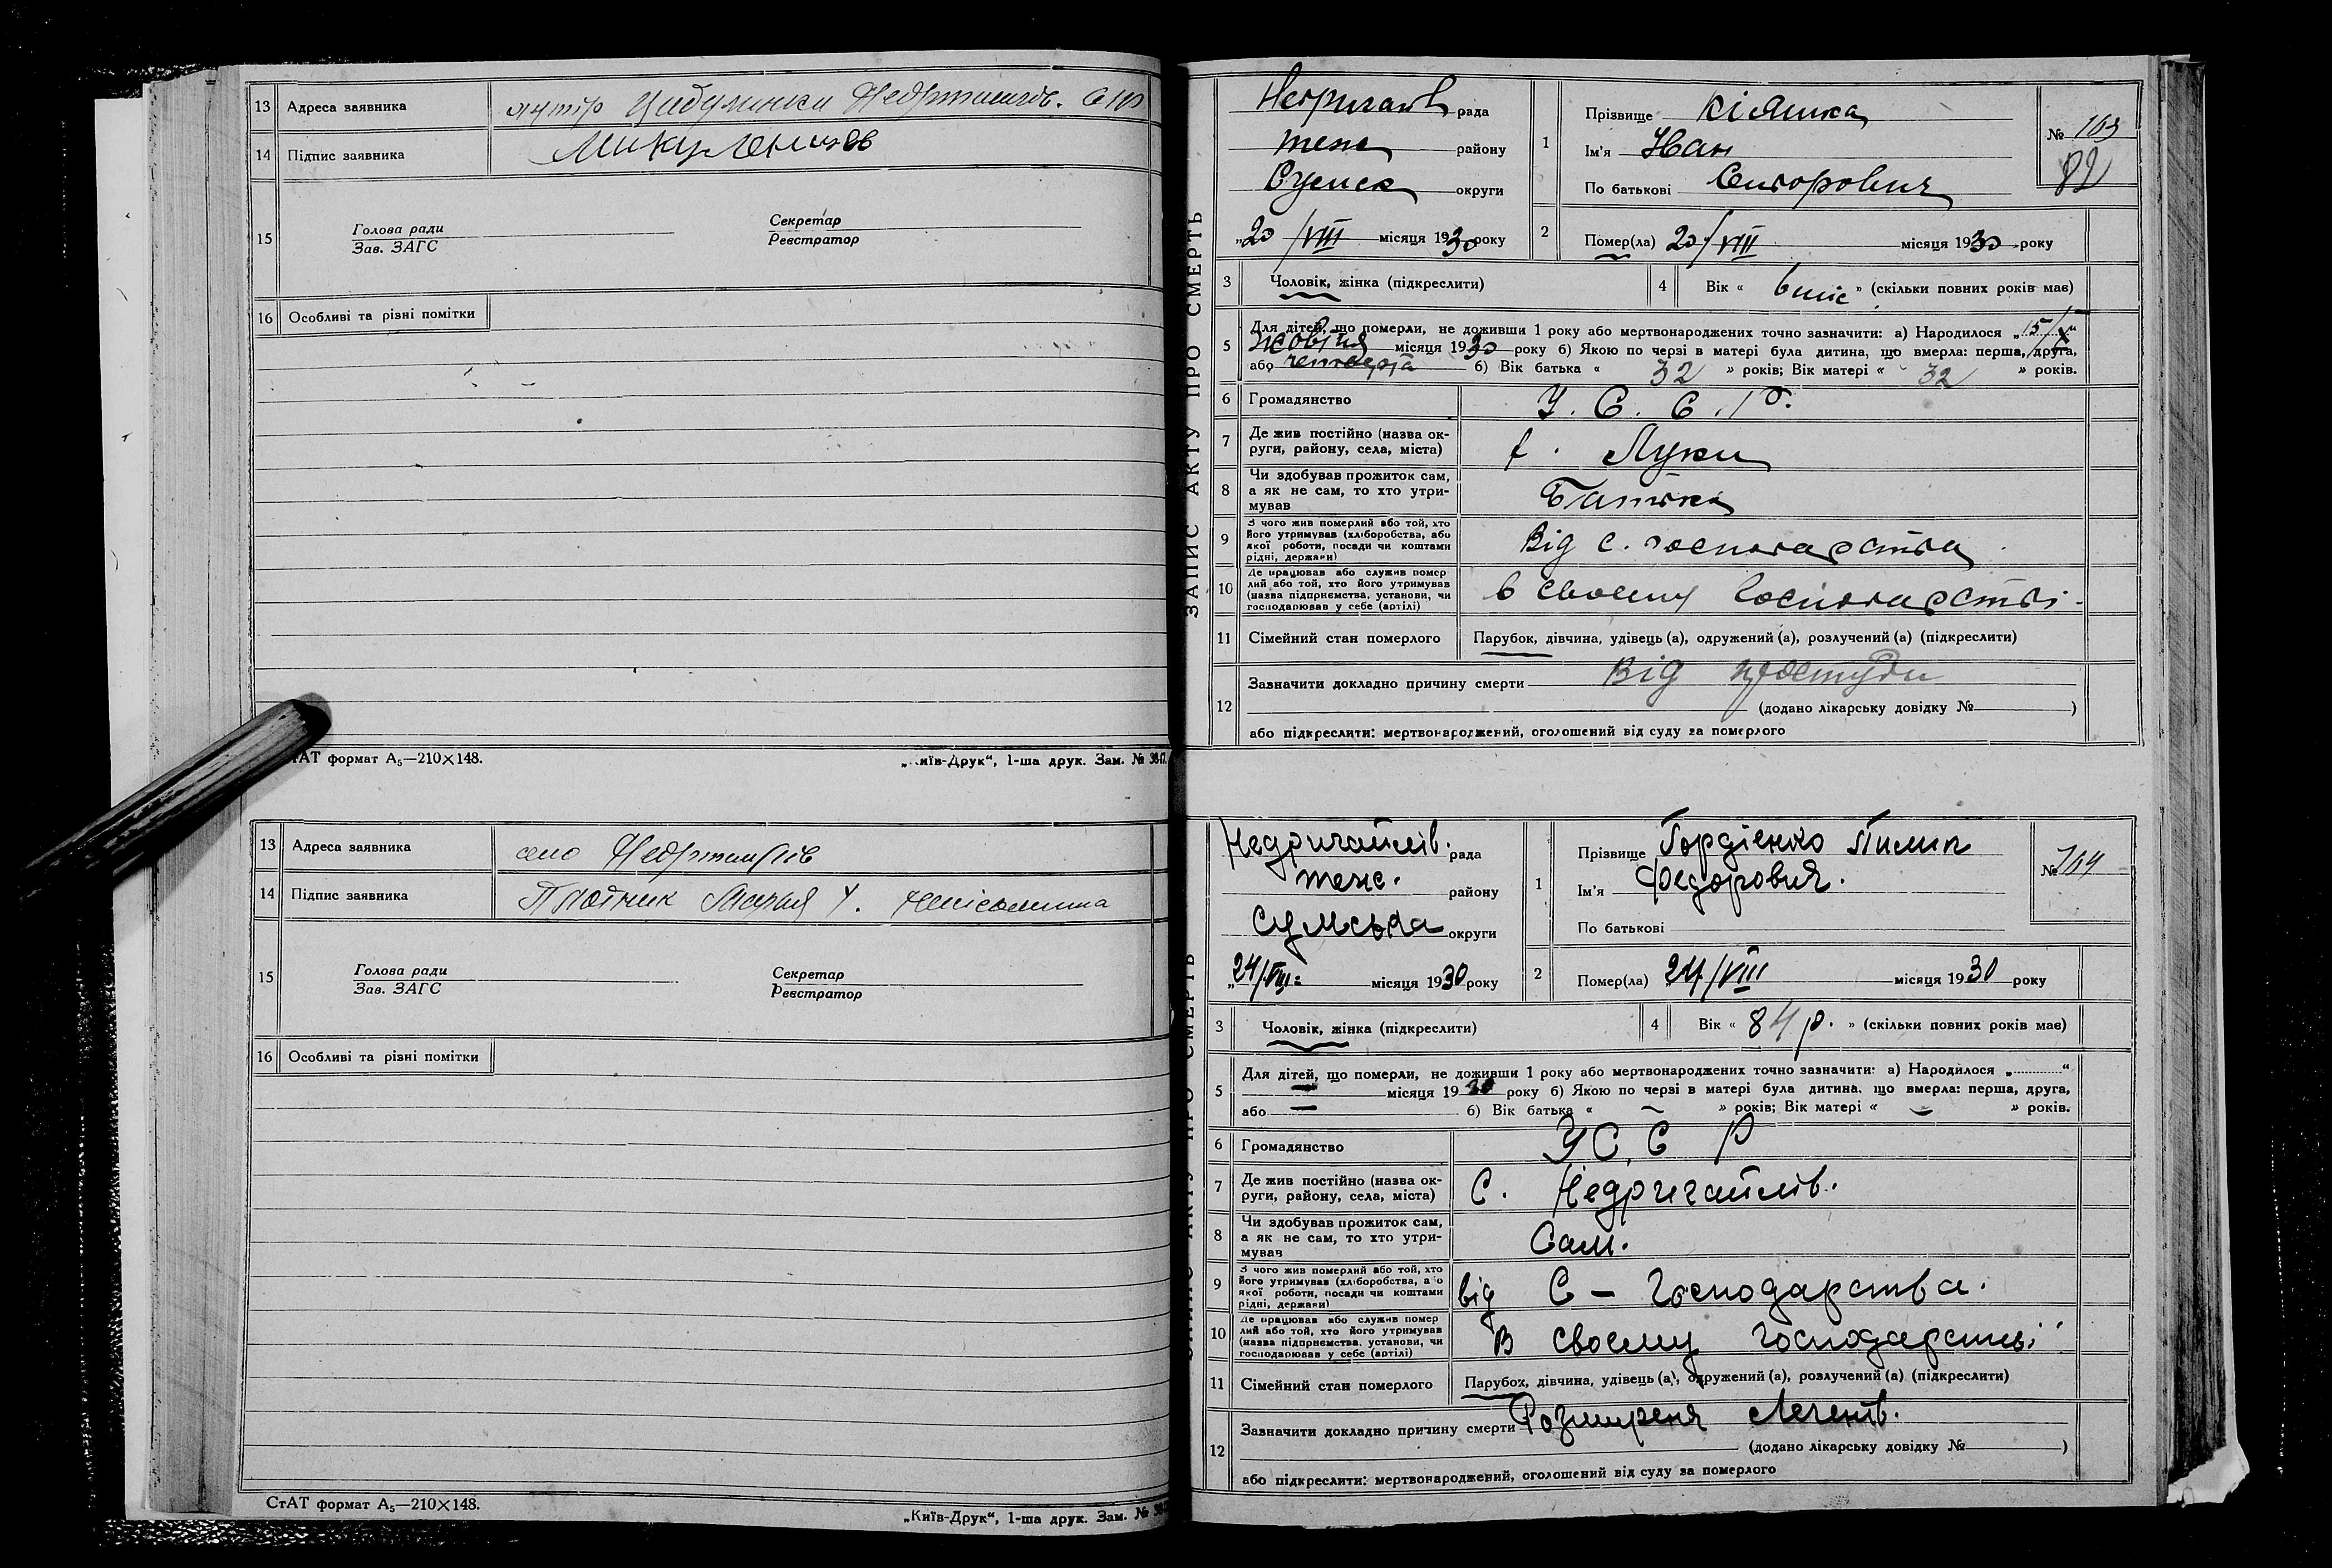 13 Адреса заявника хутір Цибуленки Недригайлів.
14 Підпис заявника Микуленков
15 Голова ради Секретар
Зав. ЗАГС Реєстратор
16 Особливі та різні помітки
СтАТ формат А₅—210×148. „Київ-Друк“, 1-ша друк. Зам. №
13 Адреса заявника село Недригайлів
14 Підпис заявника Плотник Марія
15 Голова ради Секретар
Зав. ЗАГС Реєстратор
16 Особливі та різні помітки
СтАТ формат А₅—210×148.
„Київ-Друк“, 1-ша друк. Зам. №
ЗАПИС АКТУ ПРО СМЕРТЬ
рада
теж району
Сумськ округи
„20/VIII місяця 1930 року
1 Прізвище Кіяшка
Ім'я Іван
По батькові
№ 163
82
2 Помер(ла) 20/VIII місяця 1930 року
3 Чоловік, жінка (підкреслити)
4 Вік « 6 міс » (скільки повних років має)
5 Для дітей, що померли, не доживши 1 року або мертвонароджених точно зазначити: а) Народилося „15/X“
Жовтня місяця 1930 року б) Якою по черзі в матері була дитина, що вмерла: перша, друга,
або четверта б) Вік батька « 32 » років; Вік матері « 32 » років.
6 Громадянство У. С. С. Р.
7 Де жив постійно (назва ок-
руги, району, села, міста) Луки
8 Чи здобував прожиток сам,
а як не сам, то хто утри-
мував Батько
9 З чого жив померлий або той, хто
його утримував (хліборобства, або
якої роботи, посади чи коштами
рідні, держави) Від с. господарства
10 Де працював або служив помер
лий або той, хто його утримував
(назва підприємства, установи, чи
господарював у себе (артілі) в своєму господарстві.
11 Сімейний стан померлого Парубок, дівчина, удівець (а), одружений (а), розлучений (а) (підкреслити)
12 Зазначити докладно причину смерти Від простуди
(додано лікарську довідку № )
або підкреслити: мертвонароджений, оголошений від суду за померлого
Недригайлів. рада
теж. району
Сумська округи
„24/VIII місяця 1930 року
1 Прізвище Гордієнко Пилип
Ім'я Федорович.
По батькові
№ 164
2 Помер(ла) 24/VIII місяця 1930 року
3 Чоловік, жінка (підкреслити)
4 Вік « 84 р. » (скільки повних років має)
5 Для дітей, що померли, не доживши 1 року або мертвонароджених точно зазначити: а) Народилося „..........“
— місяця 1930 року б) Якою по черзі в матері була дитина, що вмерла: перша, друга,
або — б) Вік батька « — » років; Вік матері « — » років.
6 Громадянство УССР
7 Де жив постійно (назва ок-
руги, району, села, міста) С. Недригайлів.
8 Чи здобував прожиток сам,
а як не сам, то хто утри-
мував Сам.
9 З чого жив померлий або той, хто
його утримував (хліборобства, або
якої роботи, посади чи коштами
рідні, держави) від С – Господарства.
10 Де працював або служив помер
лий або той, хто його утримував
(назва підприємства, установи, чи
господарював у себе (артілі) в своєму господарстві
11 Сімейний стан померлого Парубок, дівчина, удівець (а), одружений (а), розлучений (а) (підкреслити)
12 Зазначити докладно причину смерти Розширеня Легенів.
(додано лікарську довідку № )
або підкреслити: мертвонароджений, оголошений від суду за померлого